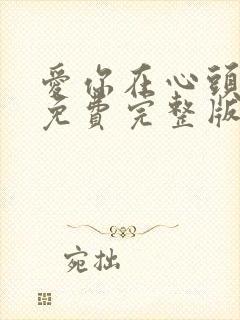 愛你在心頭
免費完整版
宛拙